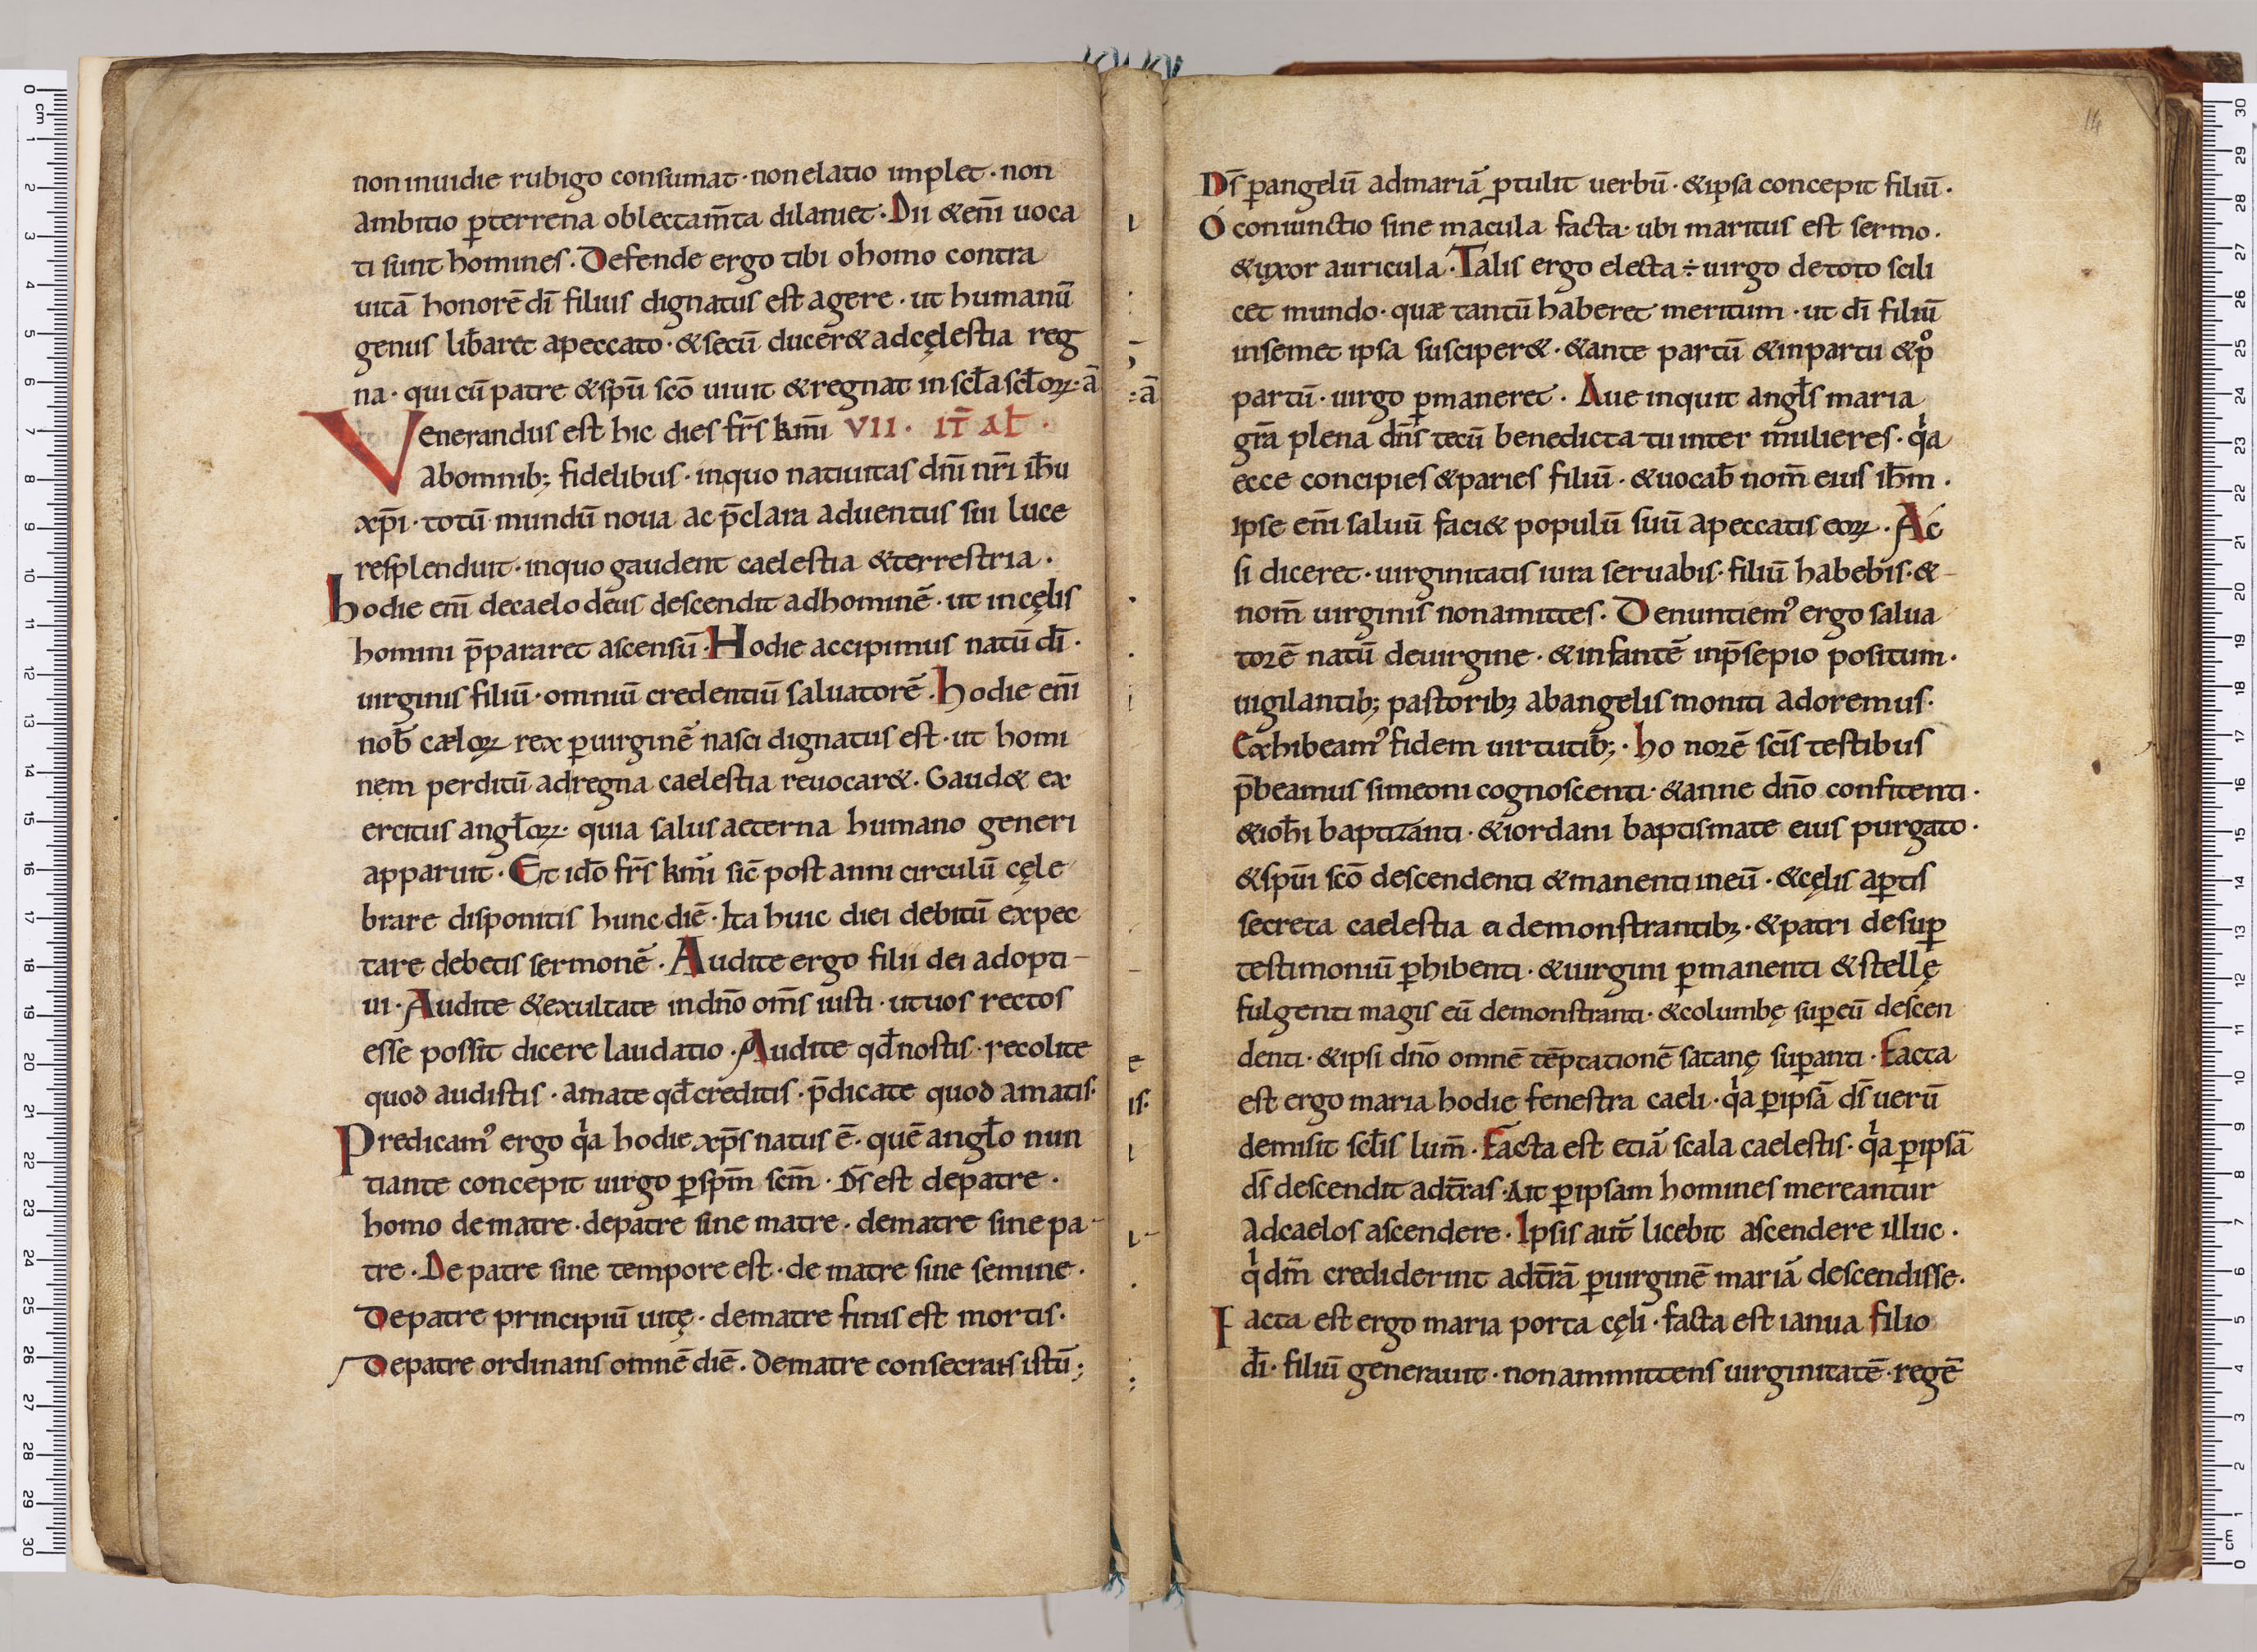 non inuidie rubigo consumat · non elatio implet · non
ambitio p̱terrena oblectam̄ta dilaniet · Dii &eni̅ uoca
ti sunt homines · Defende ergo tibi o homo contra
uitā honorē di̅ filius dignatus est agere · ut humanū
genus lib̅aret apeccato · &secū ducer& adcęlestia reg
na · qui cū patre &spū scō uiuit &regnat in scl̅a scl̅oꝝ · ā
Venerandus est hic dies fr̅s km̅i VII · IT̅ AL̅ ·
abomnib; fidelibus · inquo natiuitas dn̅i nr̅i ih̅u
xp̅i · totū mundū noua ac p̅clara aduentus sui luce
resplenduit · inquo gaudent caelestia &terrestria ·
hodie eni̅ decaelo deus descendit adhominē · ut incęlis
homini p̅pararet ascensū · Hodie accipimus natū di̅ ·
uirginis filiū · omniū credentiū saluatorē · hodie eni̅
nob̅ cæloꝝ rex ꝑuirginē nasci dignatus est · ut homi
nem perditū adregna caelestia reuocar& · Gaud& ex
ercitus angl̅oꝝ · quia salus aeterna humano generi
apparuit · Et ido̅ fr̅s km̅i sic̅ post anni circulū cęle
brare disponitis hunc diē · Ita huic diei debitū expec
tare debetis sermonē · Audite ergo filii dei adopti-
ui · Audite &exultate indn̅o om̅s iusti · utuos rectos
esse possit dicere laudatio · Audite qd̅ nostis · recolite
quod audistis · amate qd̅ creditis · p̅dicate quod amatis ·
Predicam᾿ ergo qͥa hodie xp̅s natus ē · quē angl̅o nun
tiante concepit uirgo ꝑspm̅ scm̅ · Ds̅ est depatre ·
homo dematre · depatre sine matre · dematre sine pa-
tre · De patre sine tempore est · de matre sine semine ·
Depatre principiū uitę · dematre finis est mortis ·
Depatre ordinans omnē diē · Dematre consecrans istū;
14
Ds̅ ꝑangelū admariā ꝑtulit uerbū · &ipsa concepit filiū ·
Ó coniunctio sine macula facta · ubi maritus est sermo ·
&uxor auricula · Talis ergo electa ÷ uirgo detoto scili
cet mundo · quæ tantū haberet meritum · ut di̅ filiū
insemet ipsa susciper& · &ante partū &inpartu &pͦ
partū · uirgo ꝑmaneret · Aue inquit angl̅s maria
gra̅ plena dn̅s tecū benedicta tu inter mulieres · qͥa
ecce concipies &paries filiū · &uocab̅ nom̅ eius ih̅m ·
ipse eni̅ saluū faci& populū suū apeccatis eoꝝ · Ac
si diceret · uirginitatis iura seruabis · filiū habebis · &-
nom̅ uirginis nonamittes · Denuntiem᾿ ergo salua
torē natū deuirgine · &infantē inp̅sepio positum ·
uigilantib; pastorib; abangelis moniti adoremus ·
Exhibeam᾿ fidem uirtutib; · ho norē scis̅ testibus
p̅beamus simeoni cognoscenti · &anne dn̅o confitenti ·
&ioh̅i baptizanti · &iordani baptismate eius purgato ·
&spu̅i scō descendenti &manenti ineū · &cęlis aꝑtis
secreta caelestia ei demonstrantib; · &patri desuꝑ
testimoniū ꝑhibenti · &uirgini ꝑmanenti &stellę
fulgenti magis eū demonstranti · &columbę suꝑeū descen
denti · &ipsi dn̅o omnē tēptationē satanę suꝑanti · Facta
est ergo maria hodie fenestra caeli · qͥa ꝑipsā ds̅ uerū
demisit scl̅is lum̅ · Facta est etiā scala caelestis · qͥa ꝑipsā
ds̅ descendit adt̅ras · Ait ꝑipsam homines mereantur
adcaelos ascendere · Ipsis aut̅ licebit ascendere illuc ·
qͥ dm̅ crediderint adt̅rā ꝑuirginē mariā descendisse ·
Facta est ergo maria porta cęli · facta est ianua filio
di̅ · filiū generauit · nonammittens uirginitatē · regē